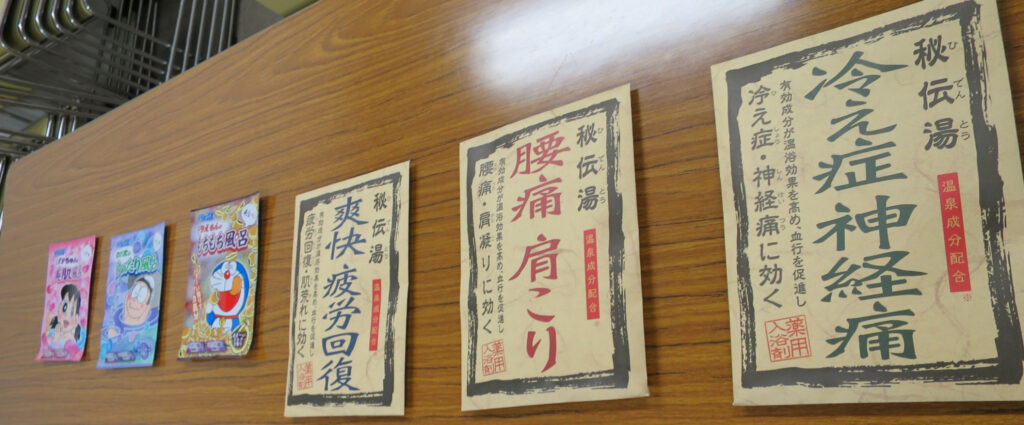 秘伝湯
冷え症神経痛
有効成分が温浴効果を高め、血行を促進し
冷え症・神経痛に効く
温泉成分配合※
薬用
入浴剤
秘伝湯
腰痛 肩こり
有効成分が温浴効果を高め、血行を促進し
腰痛・肩凝りに効く
温泉成分配合※
薬用
入浴剤
秘伝湯
爽快疲労回復
有効成分が温浴効果を高め、血行を促進し
疲労回復・肌荒れに効く
温泉成分配合
薬用
入浴剤
もちもち風呂